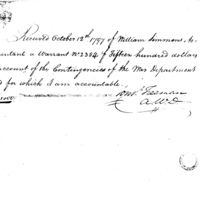 Received October 12th 1797 of William Simmons, Ac-
untant a Warrant No 2384 for Fifteen hundred dollars
account of the Contingencies of the War Department
d for which I am accountable.
Freeman
AWD